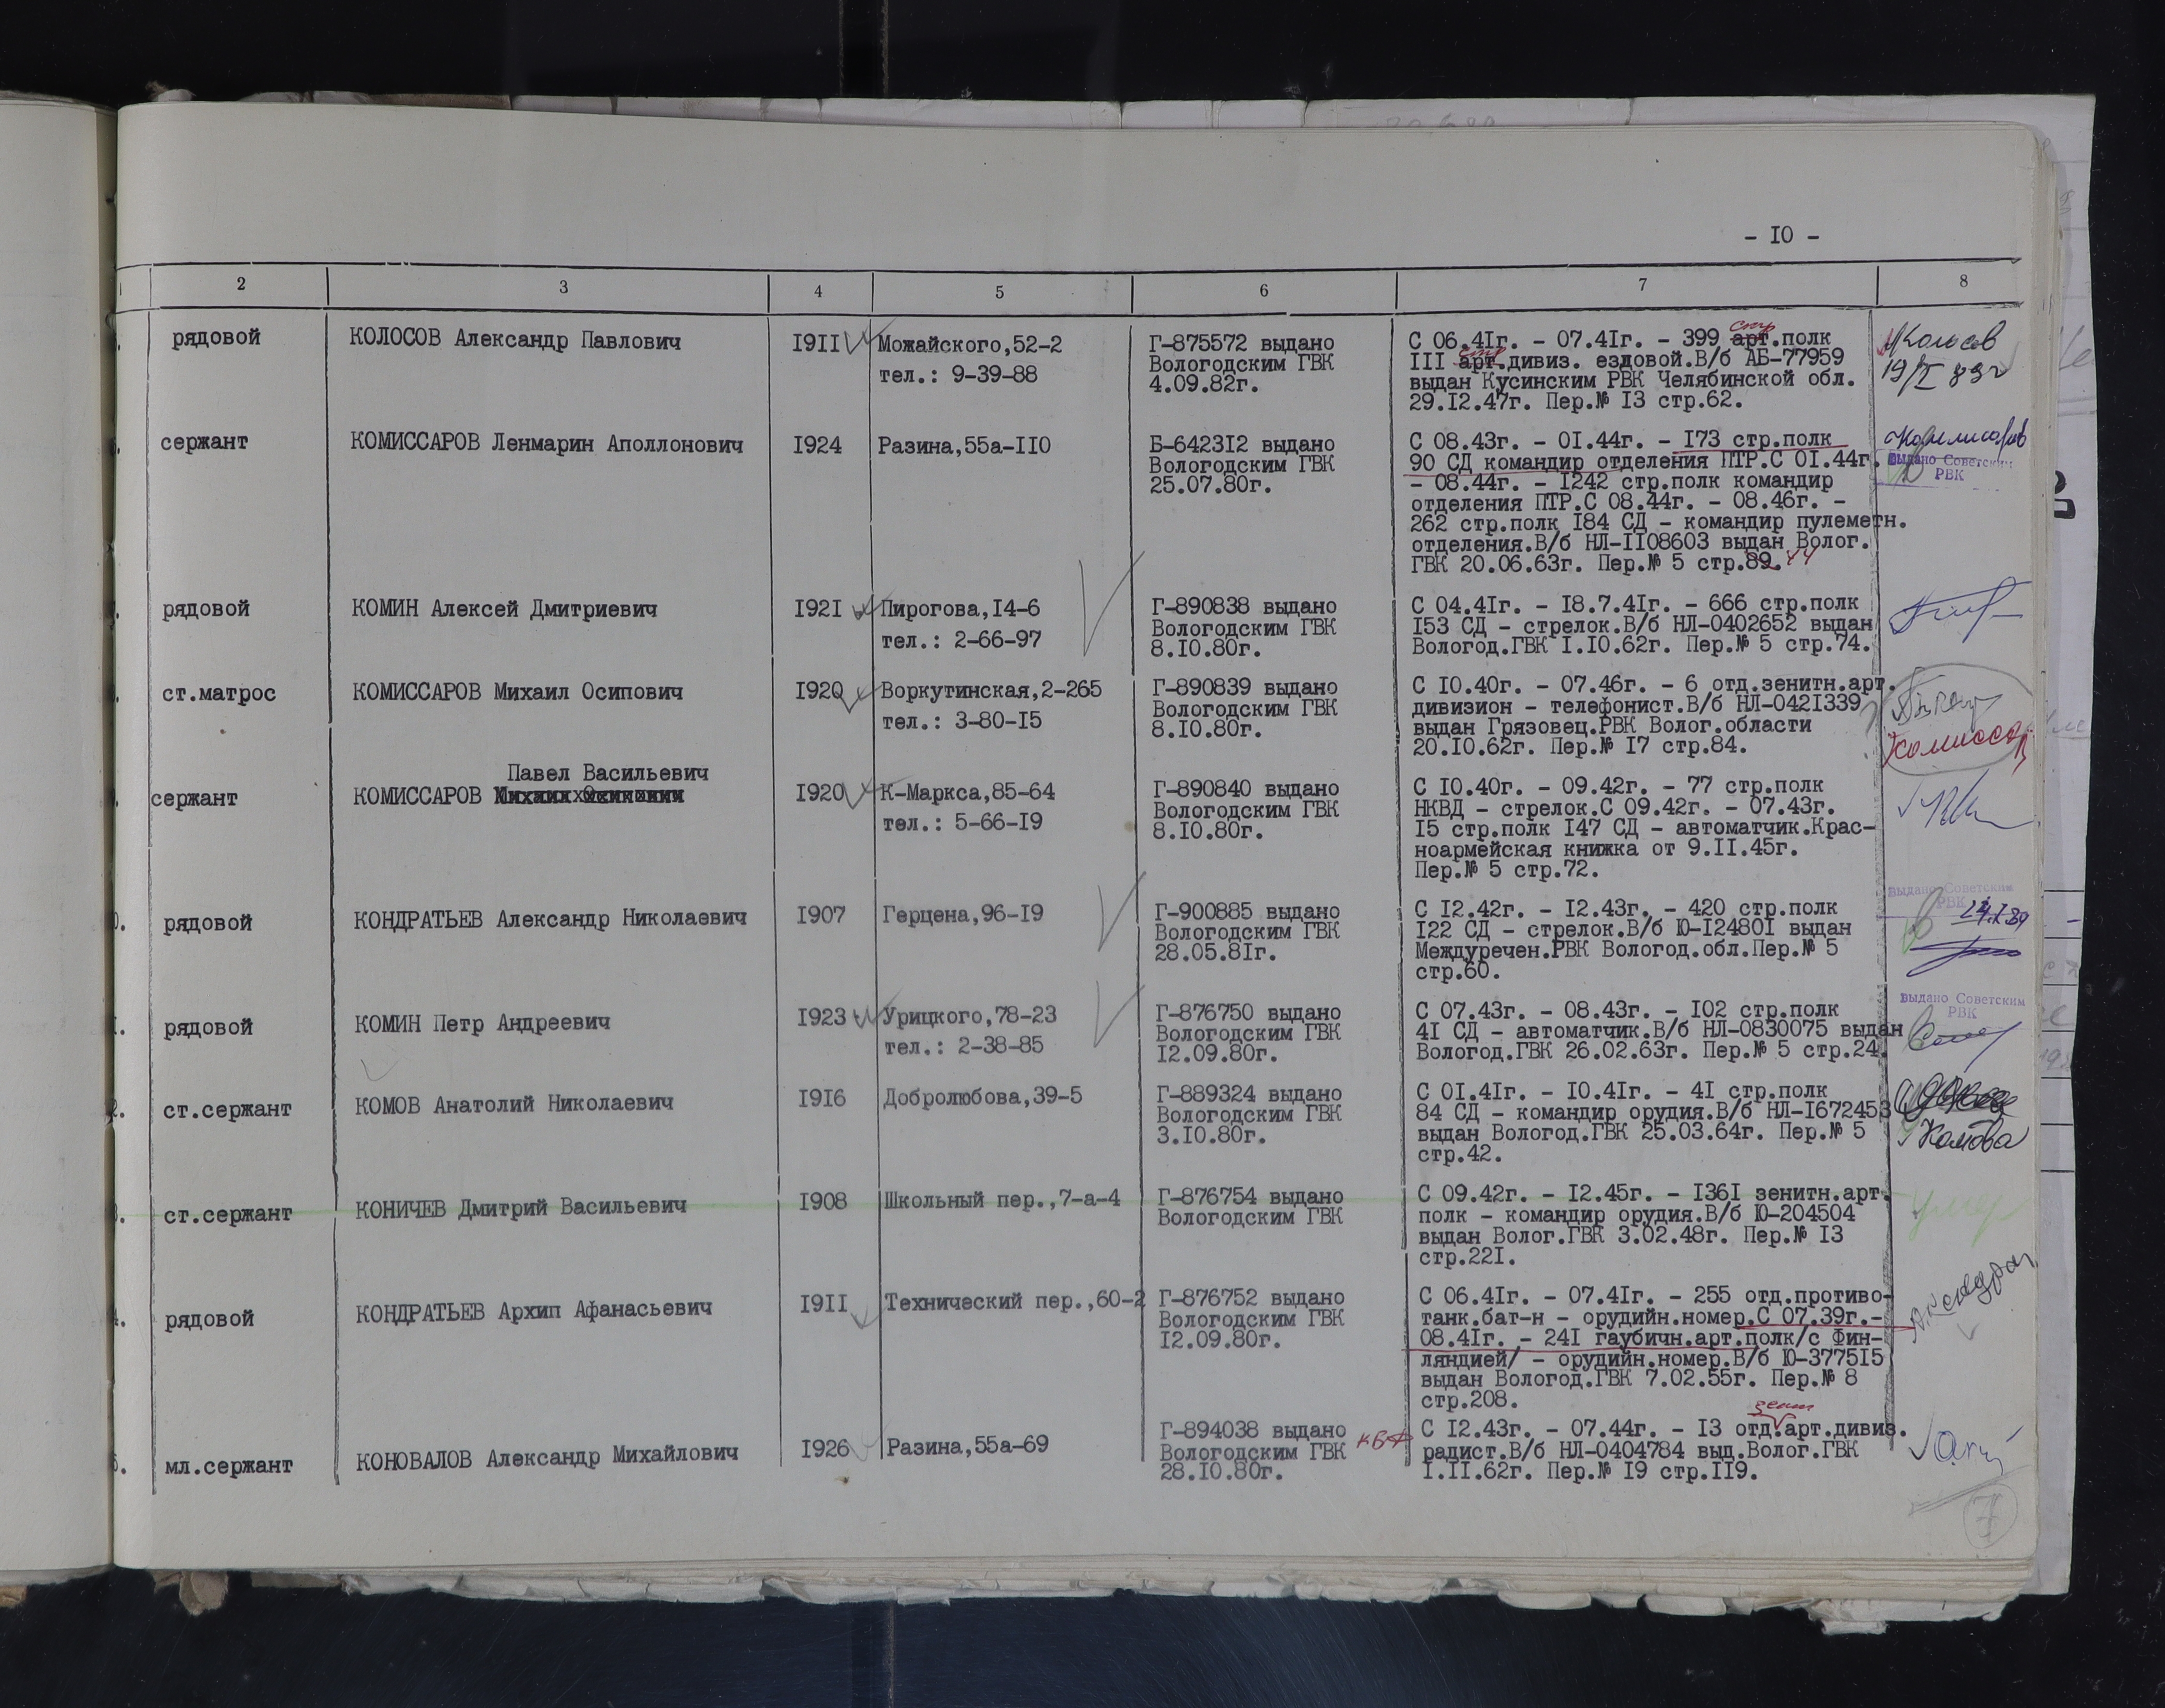 - IO -
1 2 3 4 5 6 7 8
рядовой КОЛОСОВ Александр Павлович I9II Можайского,52-2 Г-875572 выдано С 06.4Iг. - 07.4Iг. - 399 арт.полк Колосов
стр
тел.: 9-39-88 Вологодским ГВК III арт.дивиз. ездовой.В/б АБ-77959 19/I 89г
4.09.82г. выдан Кусинским РВК Челябинской обл.
29.I2.47г. Пер.№ I3 стр.62.
сержант КОМИССАРОВ Ленмарин Аполлонович I924 Разина,55а-IIO Б-6423I2 выдано С 08.43г. - OI.44г. - I73 стр.полк Комиссаров
Вологодским ГВК 90 СД командир отделения ПТР.С OI.44г. выдано Советским
25.07.80г. - 08.44г. - I242 стр.полк командир РВК
отделения ПТР.С 08.44г. - 08.46г. -
262 стр.полк I84 СД - командир пулеметн.
отделения.В/б НЛ-II08603 выдан Волог.
ГВК 20.06.63г. Пер.№ 5 стр.89. 44
рядовой КОМИН Алексей Дмитриевич I92I Пирогова,I4-6 Г-890838 выдано С 04.4Iг. - I8.7.4Iг. - 666 стр.полк
тел.: 2-66-97 Вологодским ГВК I53 СД - стрелок.В/б НЛ-0402652 выдан
8.IO.80г. Вологод.ГВК I.IO.62г. Пер.№ 5 стр.74.
ст.матрос КОМИССАРОВ Михаил Осипович I920 Воркутинская,2-265 Г-890839 выдано С IO.40г. - 07.46г. - 6 отд.зенитн.арт.
тел.: 3-80-I5 Вологодским ГВК дивизион - телефонист.В/б НЛ-042I339
8.IO.80г. выдан Грязовец.РВК Волог.области
20.IO.62г. Пер.№ I7 стр.84. Комиссар
Павел Васильевич
сержант КОМИССАРОВ I920 К-Маркса,85-64 Г-890840 выдано С IO.40г. - 09.42г. - 77 стр.полк
тел.: 5-66-I9 Вологодским ГВК НКВД - стрелок.С 09.42г. - 07.43г.
8.IO.80г. I5 стр.полк I47 СД - автоматчик.Крас-
ноармейская книжка от 9.II.45г.
Пер.№ 5 стр.72.
рядовой КОНДРАТЬЕВ Александр Николаевич I907 Герцена,96-I9 Г-900885 выдано С I2.42г. - I2.43г. - 420 стр.полк выдано Советским
Вологодским ГВК I22 СД - стрелок.В/б Ю-I2480I выдан РВК
28.05.8Iг. Междуречен.РВК Вологод.обл.Пер.№ 5
стр.60.
рядовой КОМИН Петр Андреевич I923 Урицкого,78-23 Г-876750 выдано С 07.43г. - 08.43г. - I02 стр.полк выдано Советским
тел.: 2-38-85 Вологодским ГВК 4I СД - автоматчик.В/б НЛ-0830075 выдан РВК
I2.09.80г. Вологод.ГВК 26.02.63г. Пер.№ 5 стр.24.
ст.сержант КОМОВ Анатолий Николаевич I9I6 Добролюбова,39-5 Г-889324 выдано С OI.4Iг. - IO.4Iг. - 4I стр.полк
Вологодским ГВК 84 СД - командир орудия.В/б НЛ-I672453
3.IO.80г. выдан Вологод.ГВК 25.03.64г. Пер.№ 5 Комова
стр.42.
ст.сержант КОНИЧЕВ Дмитрий Васильевич I908 Школьный пер.,7-а-4 Г-876754 выдано С 09.42г. - I2.45г. - I36I зенитн.арт. умер
Вологодским ГВК полк - командир орудия.В/б Ю-204504
выдан Волог.ГВК 3.02.48г. Пер.№ I3
стр.22I.
рядовой КОНДРАТЬЕВ Архип Афанасьевич I9II Технический пер.,60-2 Г-876752 выдано С 06.4Iг. - 07.4Iг. - 255 отд.противо-
Вологодским ГВК танк.бат-н - орудийн.номер.С 07.39г.-
I2.09.80г. 08.4Iг. - 24I гаубичн.арт.полк/с Фин-
ляндией/ - орудийн.номер.В/б Ю-3775I5
выдан Вологод.ГВК 7.02.55г. Пер.№ 8
стр.208.
зенит
мл.сержант КОНОВАЛОВ Александр Михайлович I926 Разина,55а-69 Г-894038 выдано С I2.43г. - 07.44г. - I3 отд.арт.дивиз.
Вологодским ГВК КБФ радист.В/б НЛ-0404784 выд.Волог.ГВК
28.IO.80г. I.II.62г. Пер.№ I9 стр.II9.
7